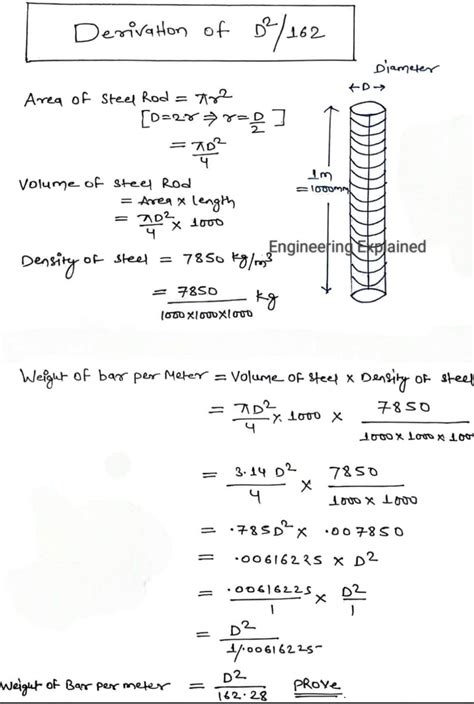 Derivation of D²/162
Diameter
←D→
Area of Steel Rod = πr²
[D=2r ⇒ r=D/2]
= πD²/4
1m
= 1000mm
Volume of Steel Rod
= Area x length
= πD²/4 x 1000
Engineering Explained
Density of steel = 7850 kg/m³
= 7850/1000x1000x1000 kg
Weight of bar per Meter = Volume of Steel x Density of steel
= πD²/4 x 1000 x 7850/1000x1000x100
= 3.14 D²/4 x 7850/1000 x 1000
= .785D² x .007850
= .00616225 x D²
= .00616225/1 x D²/1
= D²/1/.00616225
Weight of Bar per meter = D²/162.28 PROVE.